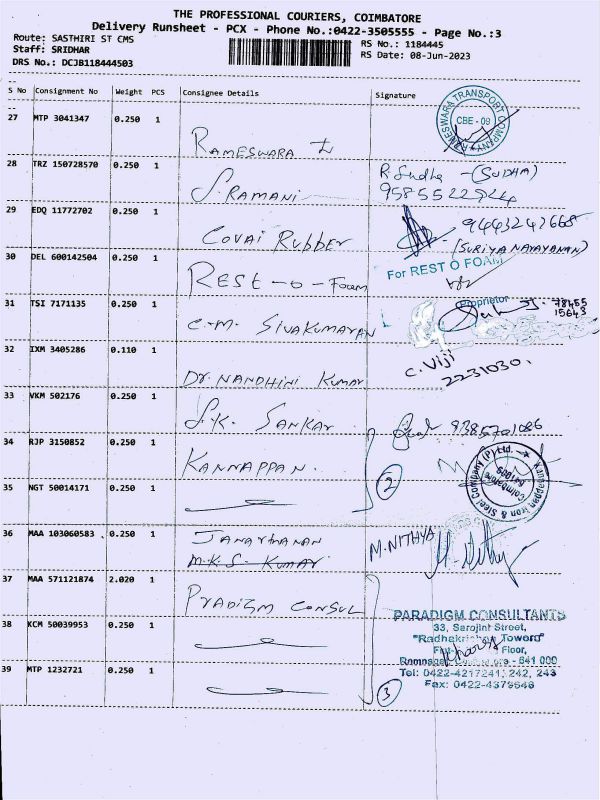 THE PROFESSIONAL COURIERS, COIMBATORE
Delivery Runsheet - PCX - Phone No.:0422-3505555 - Page No.:3
Route: SASTHIRI ST CMS
Staff: SRIDHAR
DRS No.: DCJB118444503
RS No.: 1184445
RS Date: 08-Jun-2023
S No Consignment No Weight PCS Consignee Details Signature
27 MTP 3041347 0.250 1
RAMESWARA
RAMESWARA TRANSPORT COMPANY
CBE - 09
28 TRZ 150728570 0.250 1
S. RAMANI
R. Sudha - (SUDHA)
29 EDQ 11772702 0.250 1
COVAI RUBBER
(SURIYA NARAYANAN)
30 DEL 600142504 0.250 1
REST - O - Foam
For REST O FOAM
Proprietor
31 TSI 7171135 0.250 1
C.M. SIVAKUMARAN
78455
15643
32 IXM 3405286 0.110 1
Dr. NANDHINI KUMAR
C. Viji
2231030.
33 VKM 502176 0.250 1
S.K. SANKAR
34 RJP 3150852 0.250 1
KANNAPPAN.
Kannappan Iron & Steel Company (P) Ltd.
Coimbatore
35 NGT 50014171 0.250 1
2
36 MAA 103060583 0.250 1
JANARTHANAN
M.K.S. KUMAR
M. NITHYA
37 MAA 571121874 2.020 1
PRADIGM CONSUL
PARADIGM CONSULTANTS
33, Sarojini Street,
"Radhakrishna Towers"
Floor,
38 KCM 50039953 0.250 1
Ramnagar, Coimbatore - 641 000
Tel: 0422-4217241, 242, 243
Fax: 0422-4379648
39 MTP 1232721 0.250 1
3